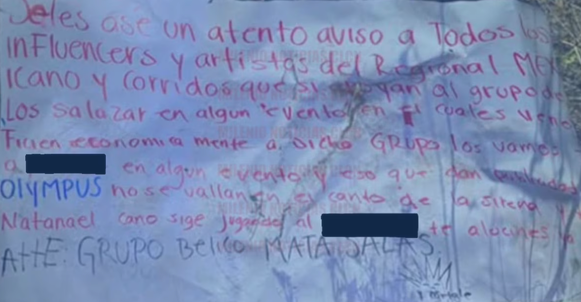 Seles ase un atento aviso a Todos los
inFluencers y artistas del Regional MEX
icano y corridos que si apoyan al grupo de
Los salazar en algun evento en el cuales vene
Ficien economica mente a dicho GRUPO los vamos
a en algun evento y eso que dan publicidad
OlYMPUS no se vallan en el canto de la sirena
Natanael cano sige jugando al te alucines
Atte: GRUPO Belico MATA SALAS